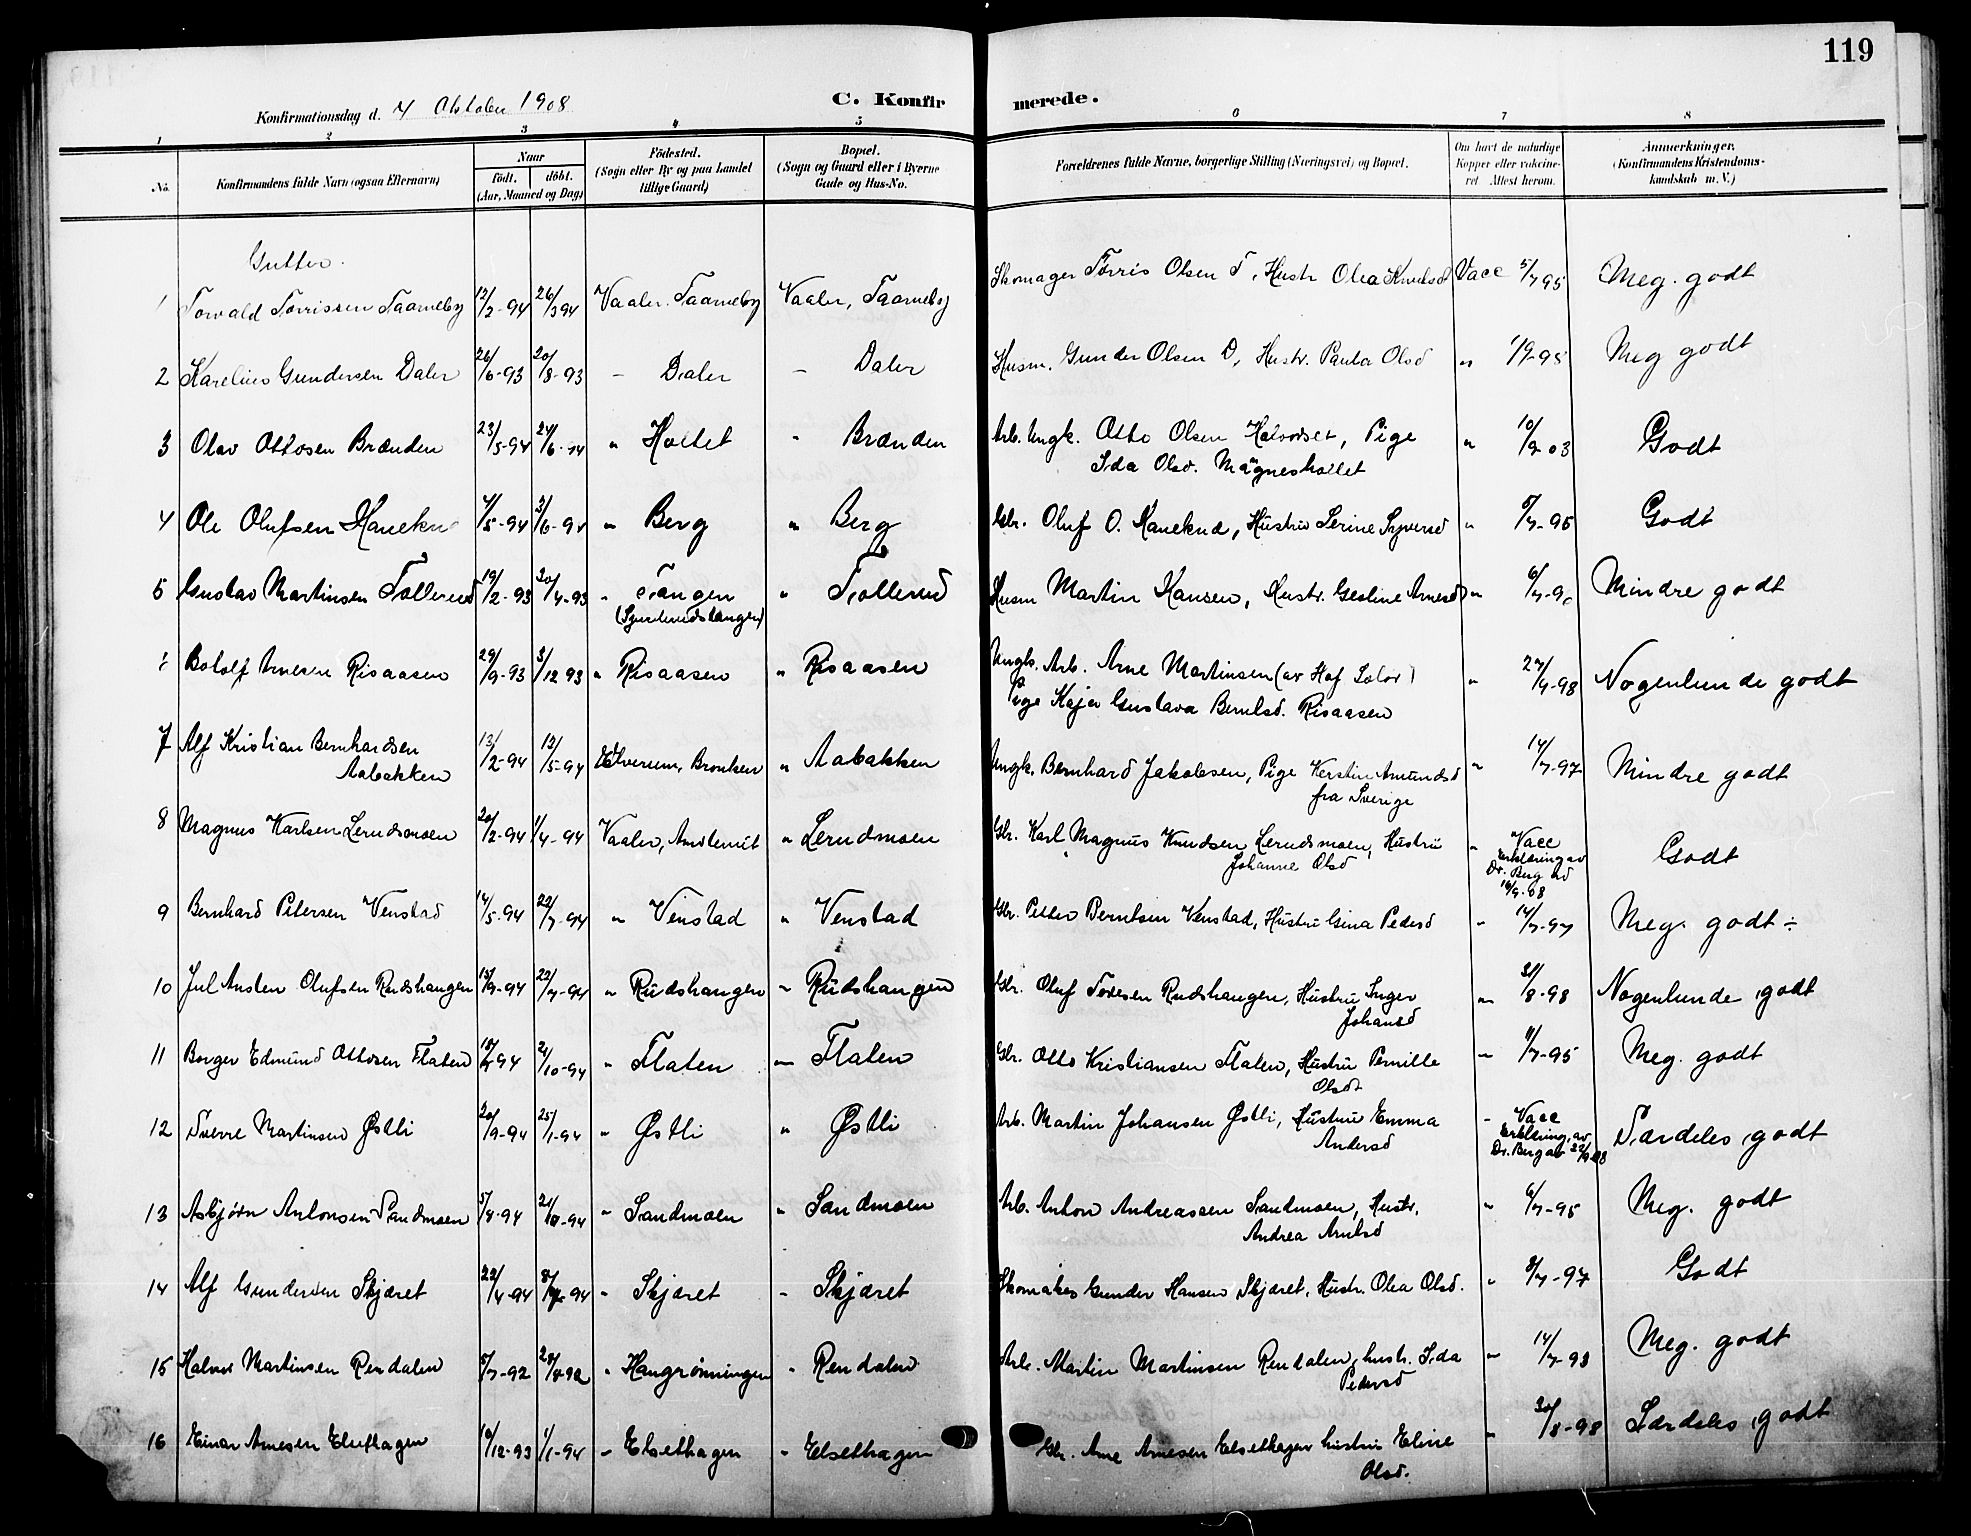 119
Konfirmationsdag d. 4 Oktober 1908
C. Konfirmerede.
1 2 3 4 5 6 7 8
No. Konfirmandens fulde Navn (ogsaa Efternavn) Naar født. døbt. (Aar, Maaned og Dag) Fødested. (Sogn eller By og paa Landet tillige Gaard) Bopæl. (Sogn og Gaard eller i Byerne Gade og Hus-No. Forældrenes fulde Navne, borgerlige Stilling (Næringsvei) og Bopæl. Om havt de naturlige Kopper eller vaccineret Attest herom. Anmærkninger. (Konfirmandens Kristendomskundskab m. V.)
Gutter.
1 Torvald Torrissen Taarneby 12/2-94 26/3 94 Vaaler, Taarneby Vaaler, Taarneby Skomager Torris Olsen T, Hustr Olea Knudsd Vacc 5/7 95 Meg. godt
2 Karelius Gundersen Daler 26/6-93 20/8-93 - Daler - Daler Husm. Gunder Olsen D, Hustr. Paula Olsd " 1/9-95 Meg godt
3 Olav Ottosen Brænden 23/5-94 24/6-94 " Holtet " Brænden Arb. Ungk. Otto Olsen Halvorset, Pige
Ida Olsd. Magnesholtet " 10/9 03 Godt
4 Ole Olufsen Haneknæ 4/5-94 3/6-94 " Berg " Berg Gbr. Oluf O. Haneknæ, Hustru Serine Syversd " 5/7-95 Godt
5 Gustav Martinsen Tollerud 19/2-93 20/4-93 " Tangen
(Gjerderudstangen) " Tollerud Husm Martin Hansen, Hustr. Gesline Arnesd " 6/7-96 Mindre godt
6 Botolf Arnesen Risaasen 29/9-93 3/12 93 " Risaasen " Risaasen Ungk. Arb. Arne Martinsen (av Hof Solør)
Pige Kaja Gustava Berntsd. Risaasen " 27/4-98 Nogenlunde godt
7 Alf Kristian Bernhardsen
Aabakken 13/2-94 13/5-94 Elverum, Bronken " Aabakken Ungk. Bernhard Jakobsen, Pige Kerstin Amundsd
fra Sverige " 14/7-97 Mindre godt
8 Magnus Karlsen Lerudsmoen 20/2-94 1/4-94 Vaaler, " Lerudmoen Gbr. Karl Magnus Knudsen Lerudsmoen, Hustru
Johanne Olsd " Vacc
Erklæring av
Dr. Berg
16/9-08 Godt
9 Bernhard Petersen Venstad 14/5-94 22/7-94 " Venstad " Venstad Gbr. Petter Berntsen Venstad, Hustru Gina Pedersd " 14/7-97 Meg. godt ÷
10 Jul Austen Olufsen Rudshaugen 22/7-94 " Rudshaugen " Rudshaugen Gbr. Oluf Toresen Rudshaugen, Hustru Inger
Johansd " 31/8-98 Nogenlunde godt
11 Borger Edmund Ottosen Flaten 94 21/10-94 " Flaten " Flaten Gbr. Otto Kristiansen Flaten, Hustru Pernille
Olsdt " 11/7-95 Meg. godt
12 Sverre Martinsen Østli 20/9-94 25/1-94 " Østli " Østli Arb. Martin Johansen Østli, Hustru Emma
Andersd - Vacc
Erklæring av
Dr. Berg av 22/9 08 Særdeles godt
13 Asbjørn Antonsen Sandmoen 5/8-94 21/10-94 " Sandmoen " Sandmoen Arb. Anton Andreassen Sandmoen, Hustr.
Andrea Arntsd " 6/7-95 Meg. godt
14 Alf Gundersen Skjæret 22/4-94 " Skjæret - Skjæret Skomaker Gunder Hansen Skjæret, Hustr. Olea Olsd. " 8/7-97 Godt
15 Halvor Martinsen Rendalen 5/7-92 28/8-92 " Haugrønningen " Rendalen Arb. Martin Martinsen Rendalen, hustr. Ida
Pedersd " 14/7-98 Meg. godt
16 Einar Arnesen Elsethagen 9/12-93 1/1-94 " Elsethagen " Elsethagen Gbr. Arne Arnesen Elsethagen hustru Eline
Olsd. " 30/8-98 Særdeles godt